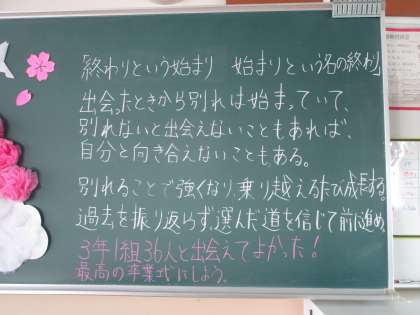 「終わりという始まり　始まりという名の終わり」
出会ったときから別れは始まっていて、
別れないと出会えないこともあれば、
自分と向き合えないこともある。
別れることで強くなり、乗り越えるたび成長する。
過去を振り返らず、選んだ道を信じて前に進め。
3年1組36人と出会えてよかった！
最高の卒業式にしよう。